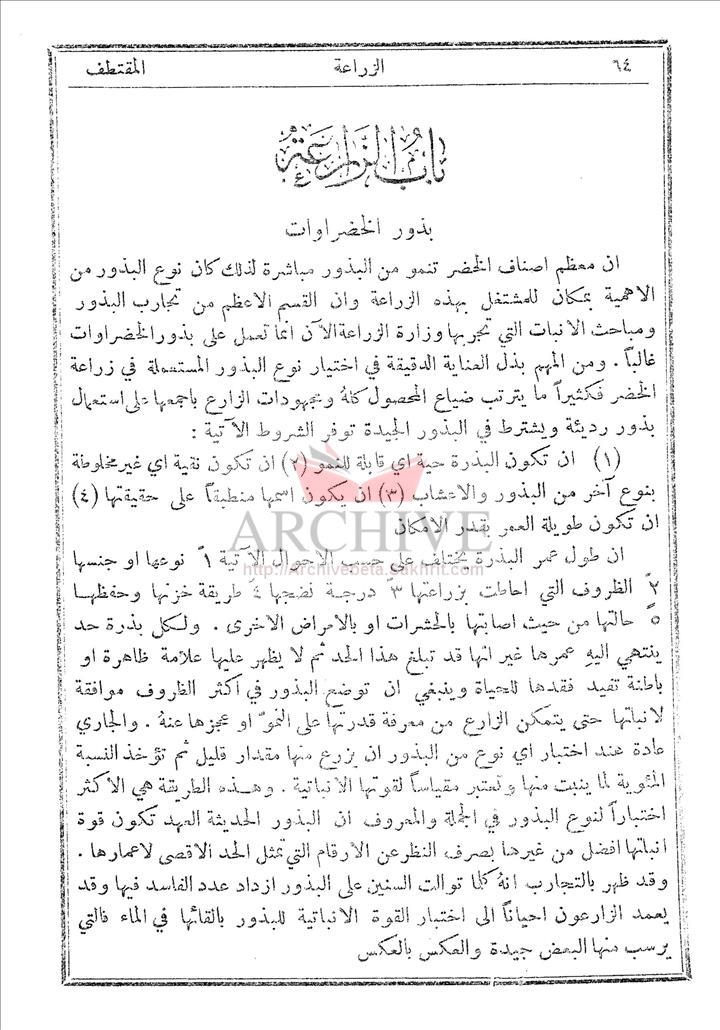 ٦٤ الزراعة المقتطف
باب الزراعة
بذور الخضراوات
ان معظم اصناف الخضر تنمو من البذور مباشرة لذلك كان نوع البذور من
الاهمية بمكان للمشتغل بهذه الزراعة وان القسم الاعظم من تجارب البذور
ومباحث الانبات التي تجربها وزارة الزراعة الآن انما تعمل على بذور الخضراوات
غالباً . ومن المهم بذل العناية الدقيقة في اختيار نوع البذور المستعملة في زراعة
الخضر فكثيراً ما يترتب ضياع المحصول كلهُ ومجهودات الزارع باجمعها على استعمال
بذور رديئة ويشترط في البذور الجيدة توفر الشروط الآتية :
(١) ان تكون البذرة حية اي قابلة للنمو (٢) ان تكون نقية اي غير مخلوطة
بنوع آخر من البذور والاعشاب (٣) ان يكون اسمها منطبقاً على حقيقتها (٤)
ان تكون طويلة العمر بقدر الامكان
ARCHIVE
ان طول عمر البذرة يختلف على حسب الاحوال الآتية ١ً نوعها او جنسها
http://Archivebeta.Sakhrit.com
٢ً الظروف التي احاطت بزراعتها ٣ً درجة نضجها ٤ً طريقة خزنها وحفظها
٥ً حالتها من حيث اصابتها بالحشرات او بالامراض الاخرى . ولكل بذرة حد
ينتهي اليهِ عمرها غير انها قد تبلغ هذا الحد ثم لا يظهر عليها علامة ظاهرة او
باطنة تفيد فقدها للحياة وينبغي ان توضع البذور في اكثر الظروف موافقة
لانباتها حتى يتمكن الزارع من معرفة قدرتها على النموّ او عجزها عنهُ . والجاري
عادة عند اختبار اي نوع من البذور ان يزرع منها مقدار قليل ثم تؤخذ النسبة
المئوية لما ينبت منها وتعتبر مقياساً لقوتها الانباتية . وهذه الطريقة هي الاكثر
اختباراً لنوع البذور في الجملة والمعروف ان البذور الحديثة العهد تكون قوة
انباتها افضل من غيرها بصرف النظر عن الارقام التي تمثل الحد الاقصى لاعمارها .
وقد ظهر بالتجارب انهُ كلما توالت السنين على البذور ازداد عدد الفاسد فيها وقد
يعمد الزارعون احياناً الى اختبار القوة الانباتية للبذور بالقائها في الماء فالتي
يرسب منها البعض جيدة والعكس بالعكس